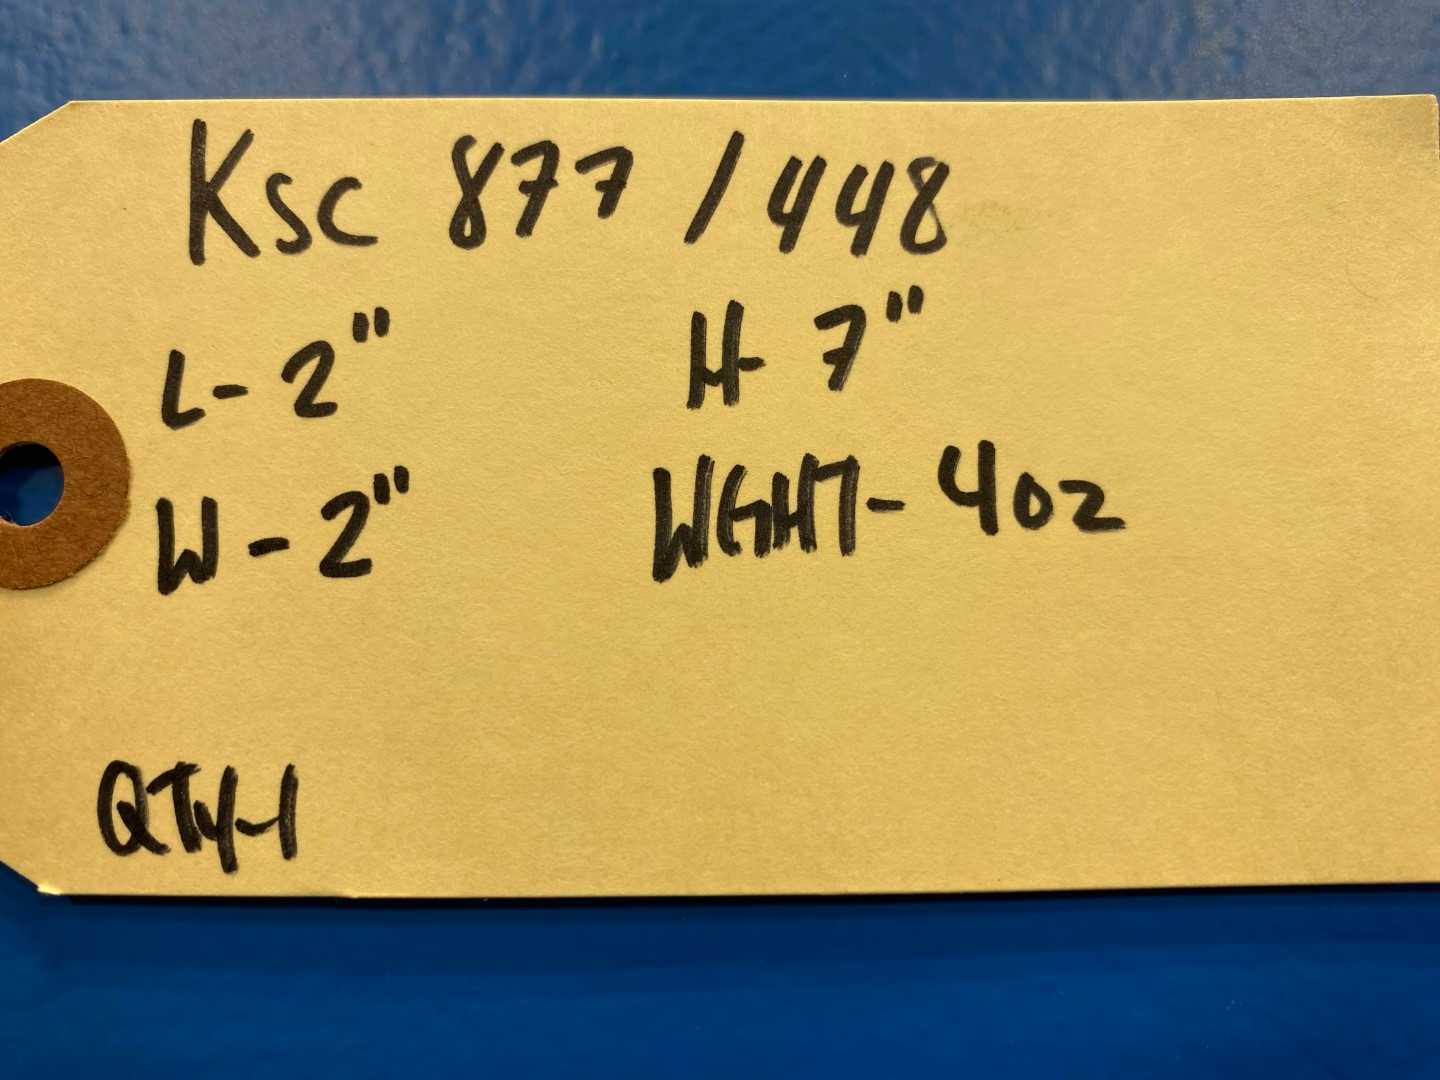 Ksc 877 / 448
L- 2" H- 7"
W - 2" WGHT- 4oz
QTY-1